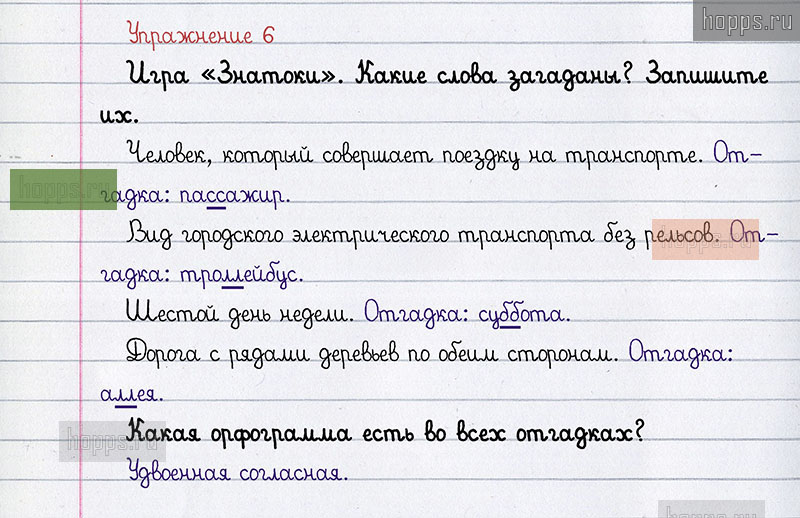 hopps.ru
Упражнение 6
Игра «Знатоки». Какие слова загаданы? Запишите
их.
Человек, который совершает поездку на транспорте. От-
hopps.ru
гадка: пассажир.
Вид городского электрического транспорта без рельсов. От-
гадка: троллейбус.
Шестой день недели. Отгадка: суббота.
Дорога с рядами деревьев по обеим сторонам. Отгадка:
аллея.
hopps.ru
Какая орфограмма есть во всех отгадках?
Удвоенная согласная.
hopps.ru